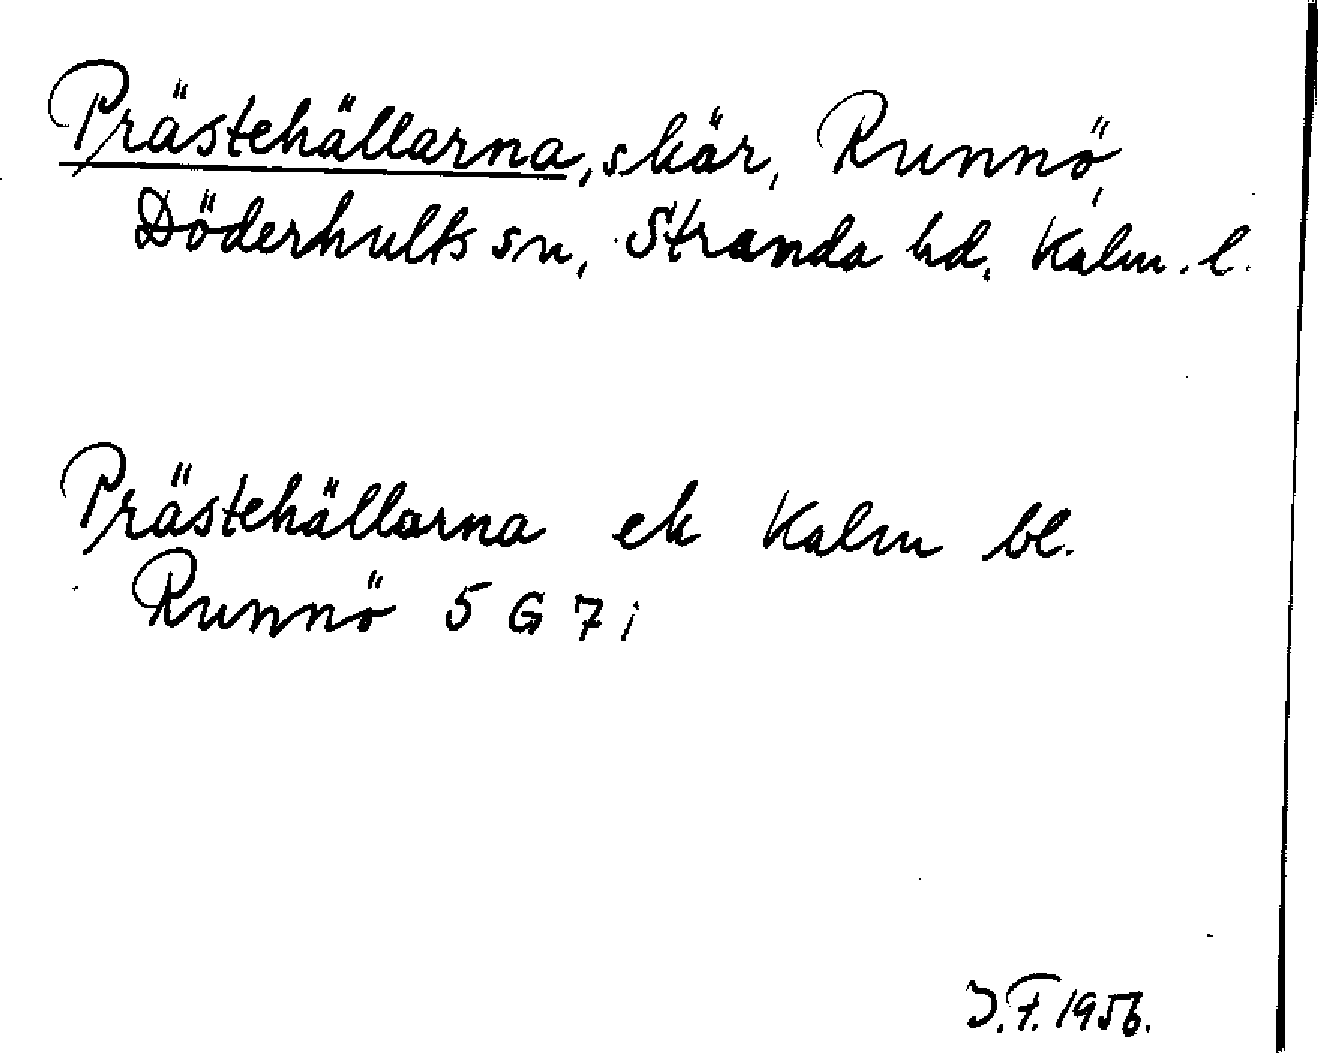 Prästehällarna, skär, Runnö,
Döderhults sn, Stranda hd, Kalm. l.
Prästehällarna ek Kalm bl.
Runnö 5 G 7 i
J.F. 1956.